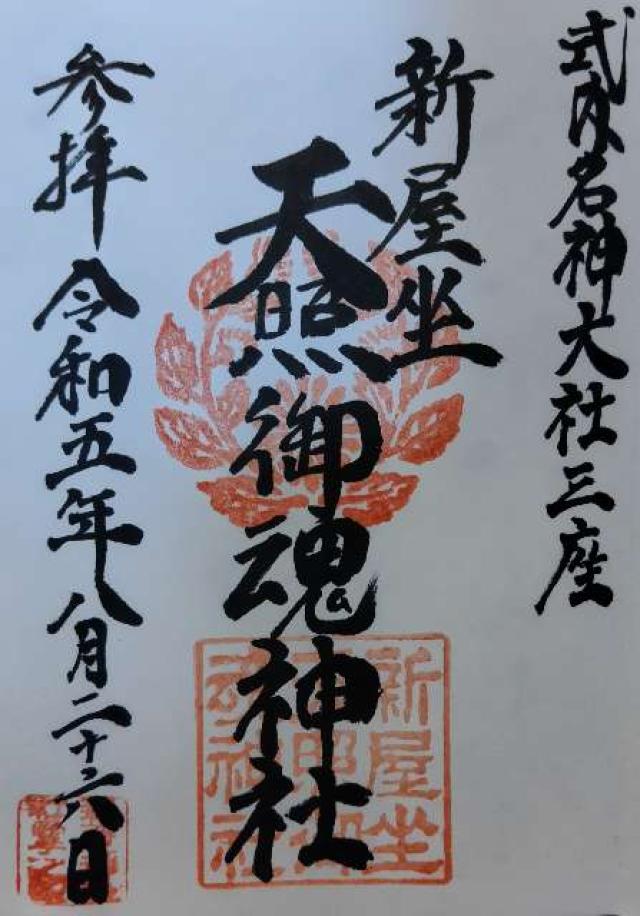 式内名神大社三座
新屋坐
天照御魂神社
参拝 令和五年八月二十六日
新屋坐